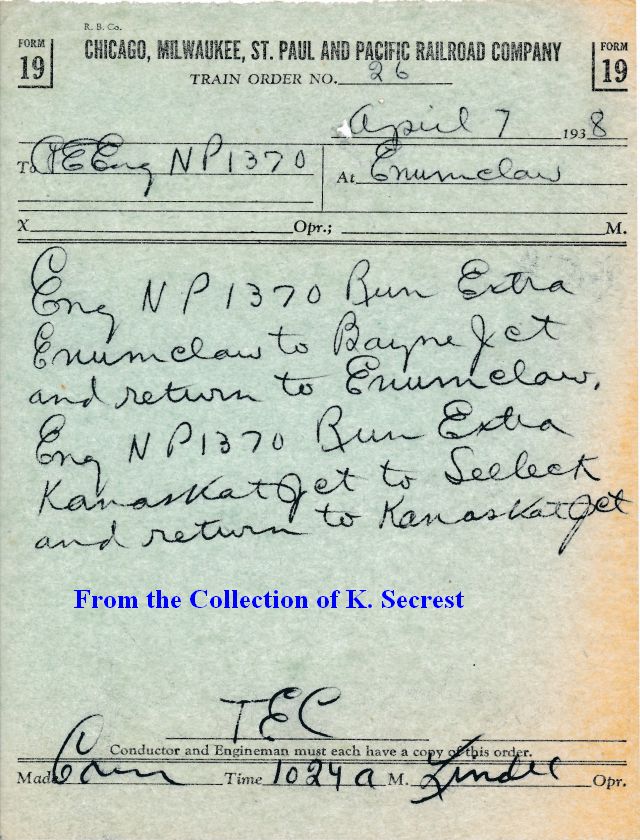 R. B. Co.
FORM 19
CHICAGO, MILWAUKEE, ST. PAUL AND PACIFIC RAILROAD COMPANY
FORM 19
TRAIN ORDER NO. 26
April 7 1938
To C&E Eng NP 1370 At Enumclaw
X Opr.; M.
Eng NP 1370 Run Extra
Enumclaw to Bayne Jct
and return to Enumclaw.
Eng NP 1370 Run Extra
Kanaskat Jct to Selleck
and return to Kanaskat Jct
From the Collection of K. Secrest
TEC
Conductor and Engineman must each have a copy of this order.
Made Com Time 1024 a M. Opr.